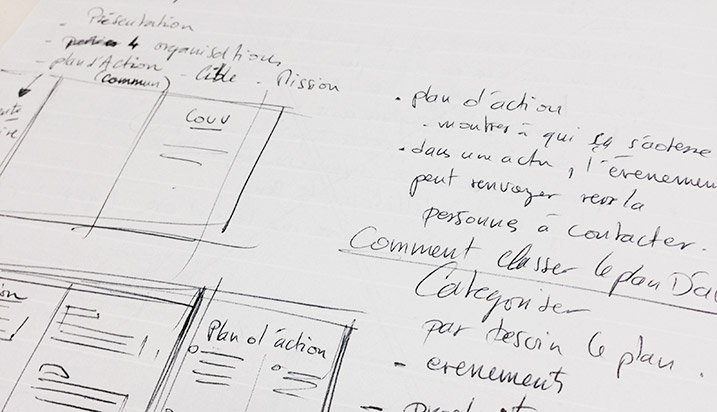 - Présentation
- 4 organisations
- plan d'Action - Cible - Mission
(commun)
Couv
Plan d'action
• plan d'action
- montrer à qui s'adresse
• dans un actu, l'évenemen
peut renvoyer vers la
personnes à contacter.
Comment classer le plan D'a
Categoriser
par besoin le plan.
- evenements